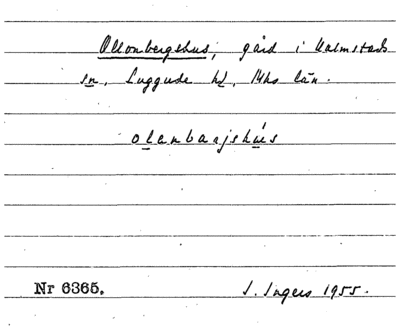 Ollonbergshus, gård i Halmstads
sn, Luggude hd, Mhs län.
olanbarjshús
Nr 6365.
I. Ingers 1955.